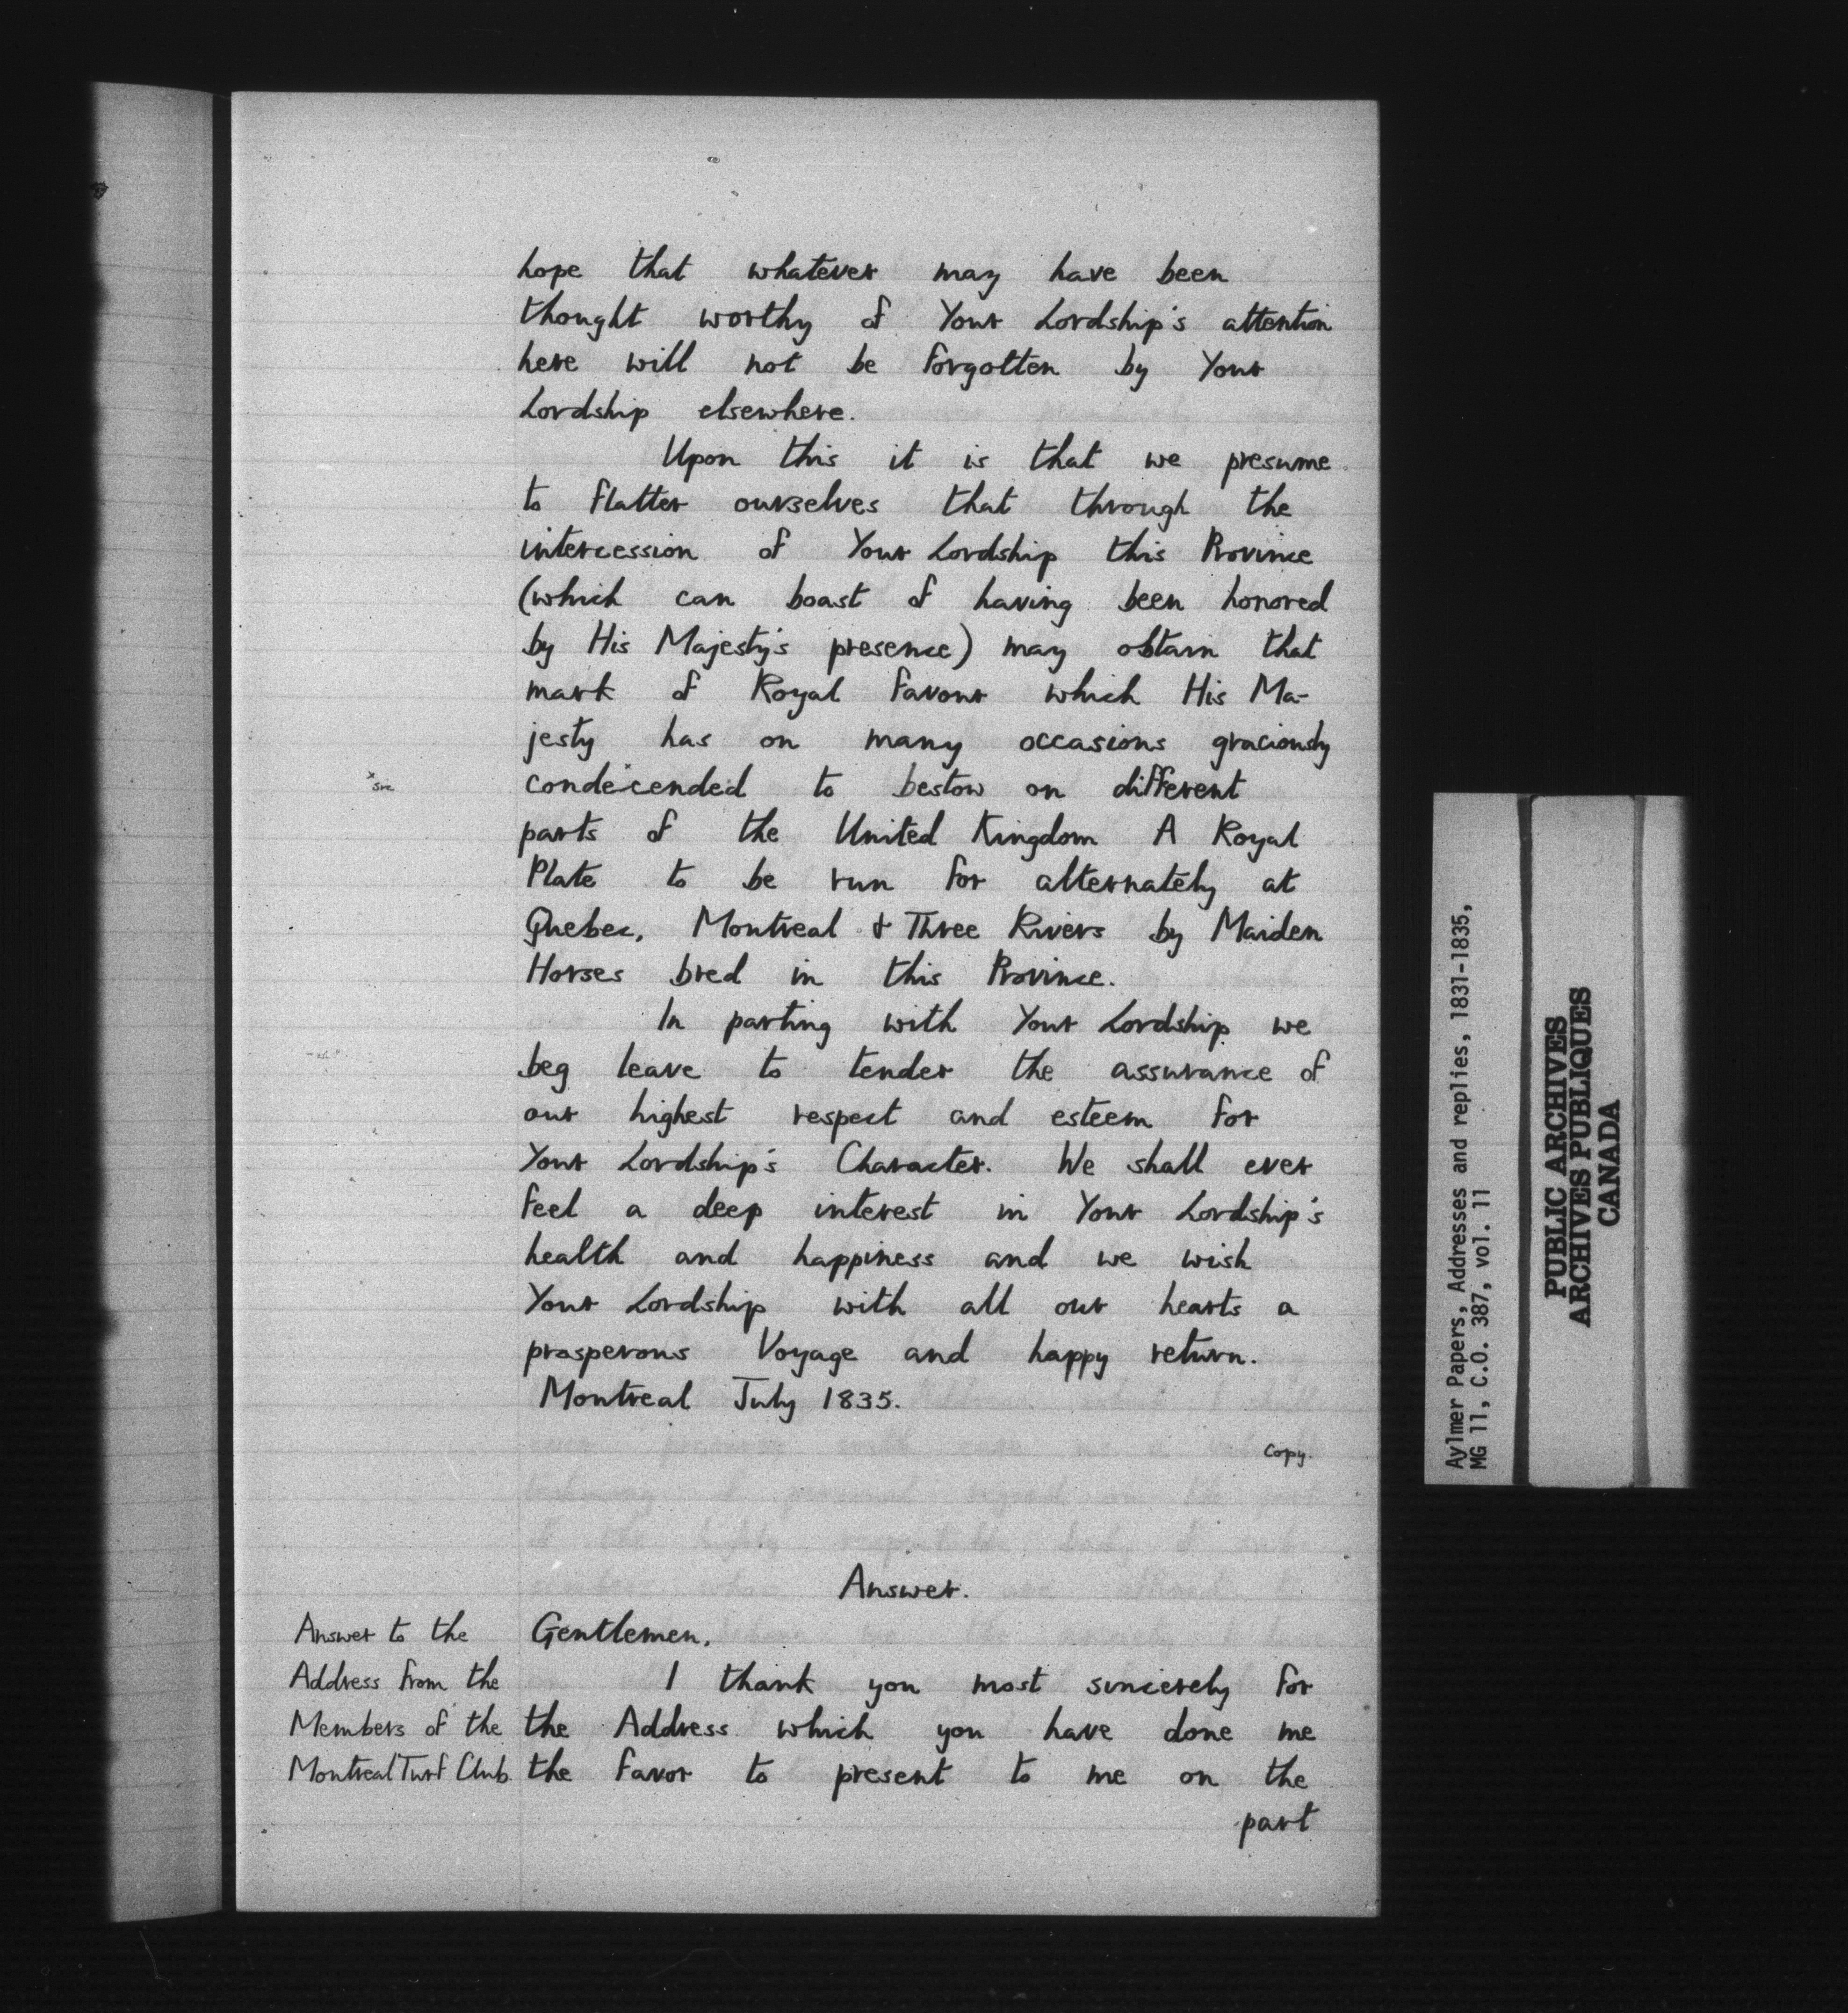 hope that whatever may have been
thought worthy of Your Lordship's attention
here will not be forgotten by Your
Lordship elsewhere.
Upon this it is that we presume
to flatter ourselves that through the
intercession of Your Lordship this Province
(which can boast of having been honored
by His Majesty's presence) may obtain that
mark of Royal favour which His Ma-
jesty has on many occasions graciously
x sic condecended to bestow on different
parts of the United Kingdom A Royal
Plate to be run for alternately at
Quebec, Montreal & Three Rivers by Maiden
Horses bred in this Province.
In parting with Your Lordship we
beg leave to tender the assurance of
our highest respect and esteem for
Your Lordship's Character. We shall ever
feel a deep interest in Your Lordship's
health and happiness and we wish
Your Lordship with all our hearts a
prosperous Voyage and happy return.
Montreal July 1835.
Copy.
Answer.
Answer to the
Address from the
Members of the
Montreal Turf Club.
Gentlemen,
I thank you most sincerely for
the Address which you have done me
the favor to present to me on the
part
Aylmer Papers, Addresses and replies, 1831-1835,
MG 11, C.O. 387, vol. 11
PUBLIC ARCHIVES
ARCHIVES PUBLIQUES
CANADA